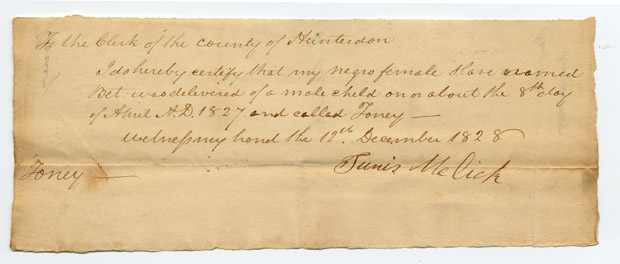 To the Clerk of the county of Hunterdon
I do hereby certify that my negro female slave named
Bet was delivered of a male child on or about the 8th day
of April A.D. 1827 and called Toney —
witness my hand the 12th December 1828
Toney — Tunis Melick